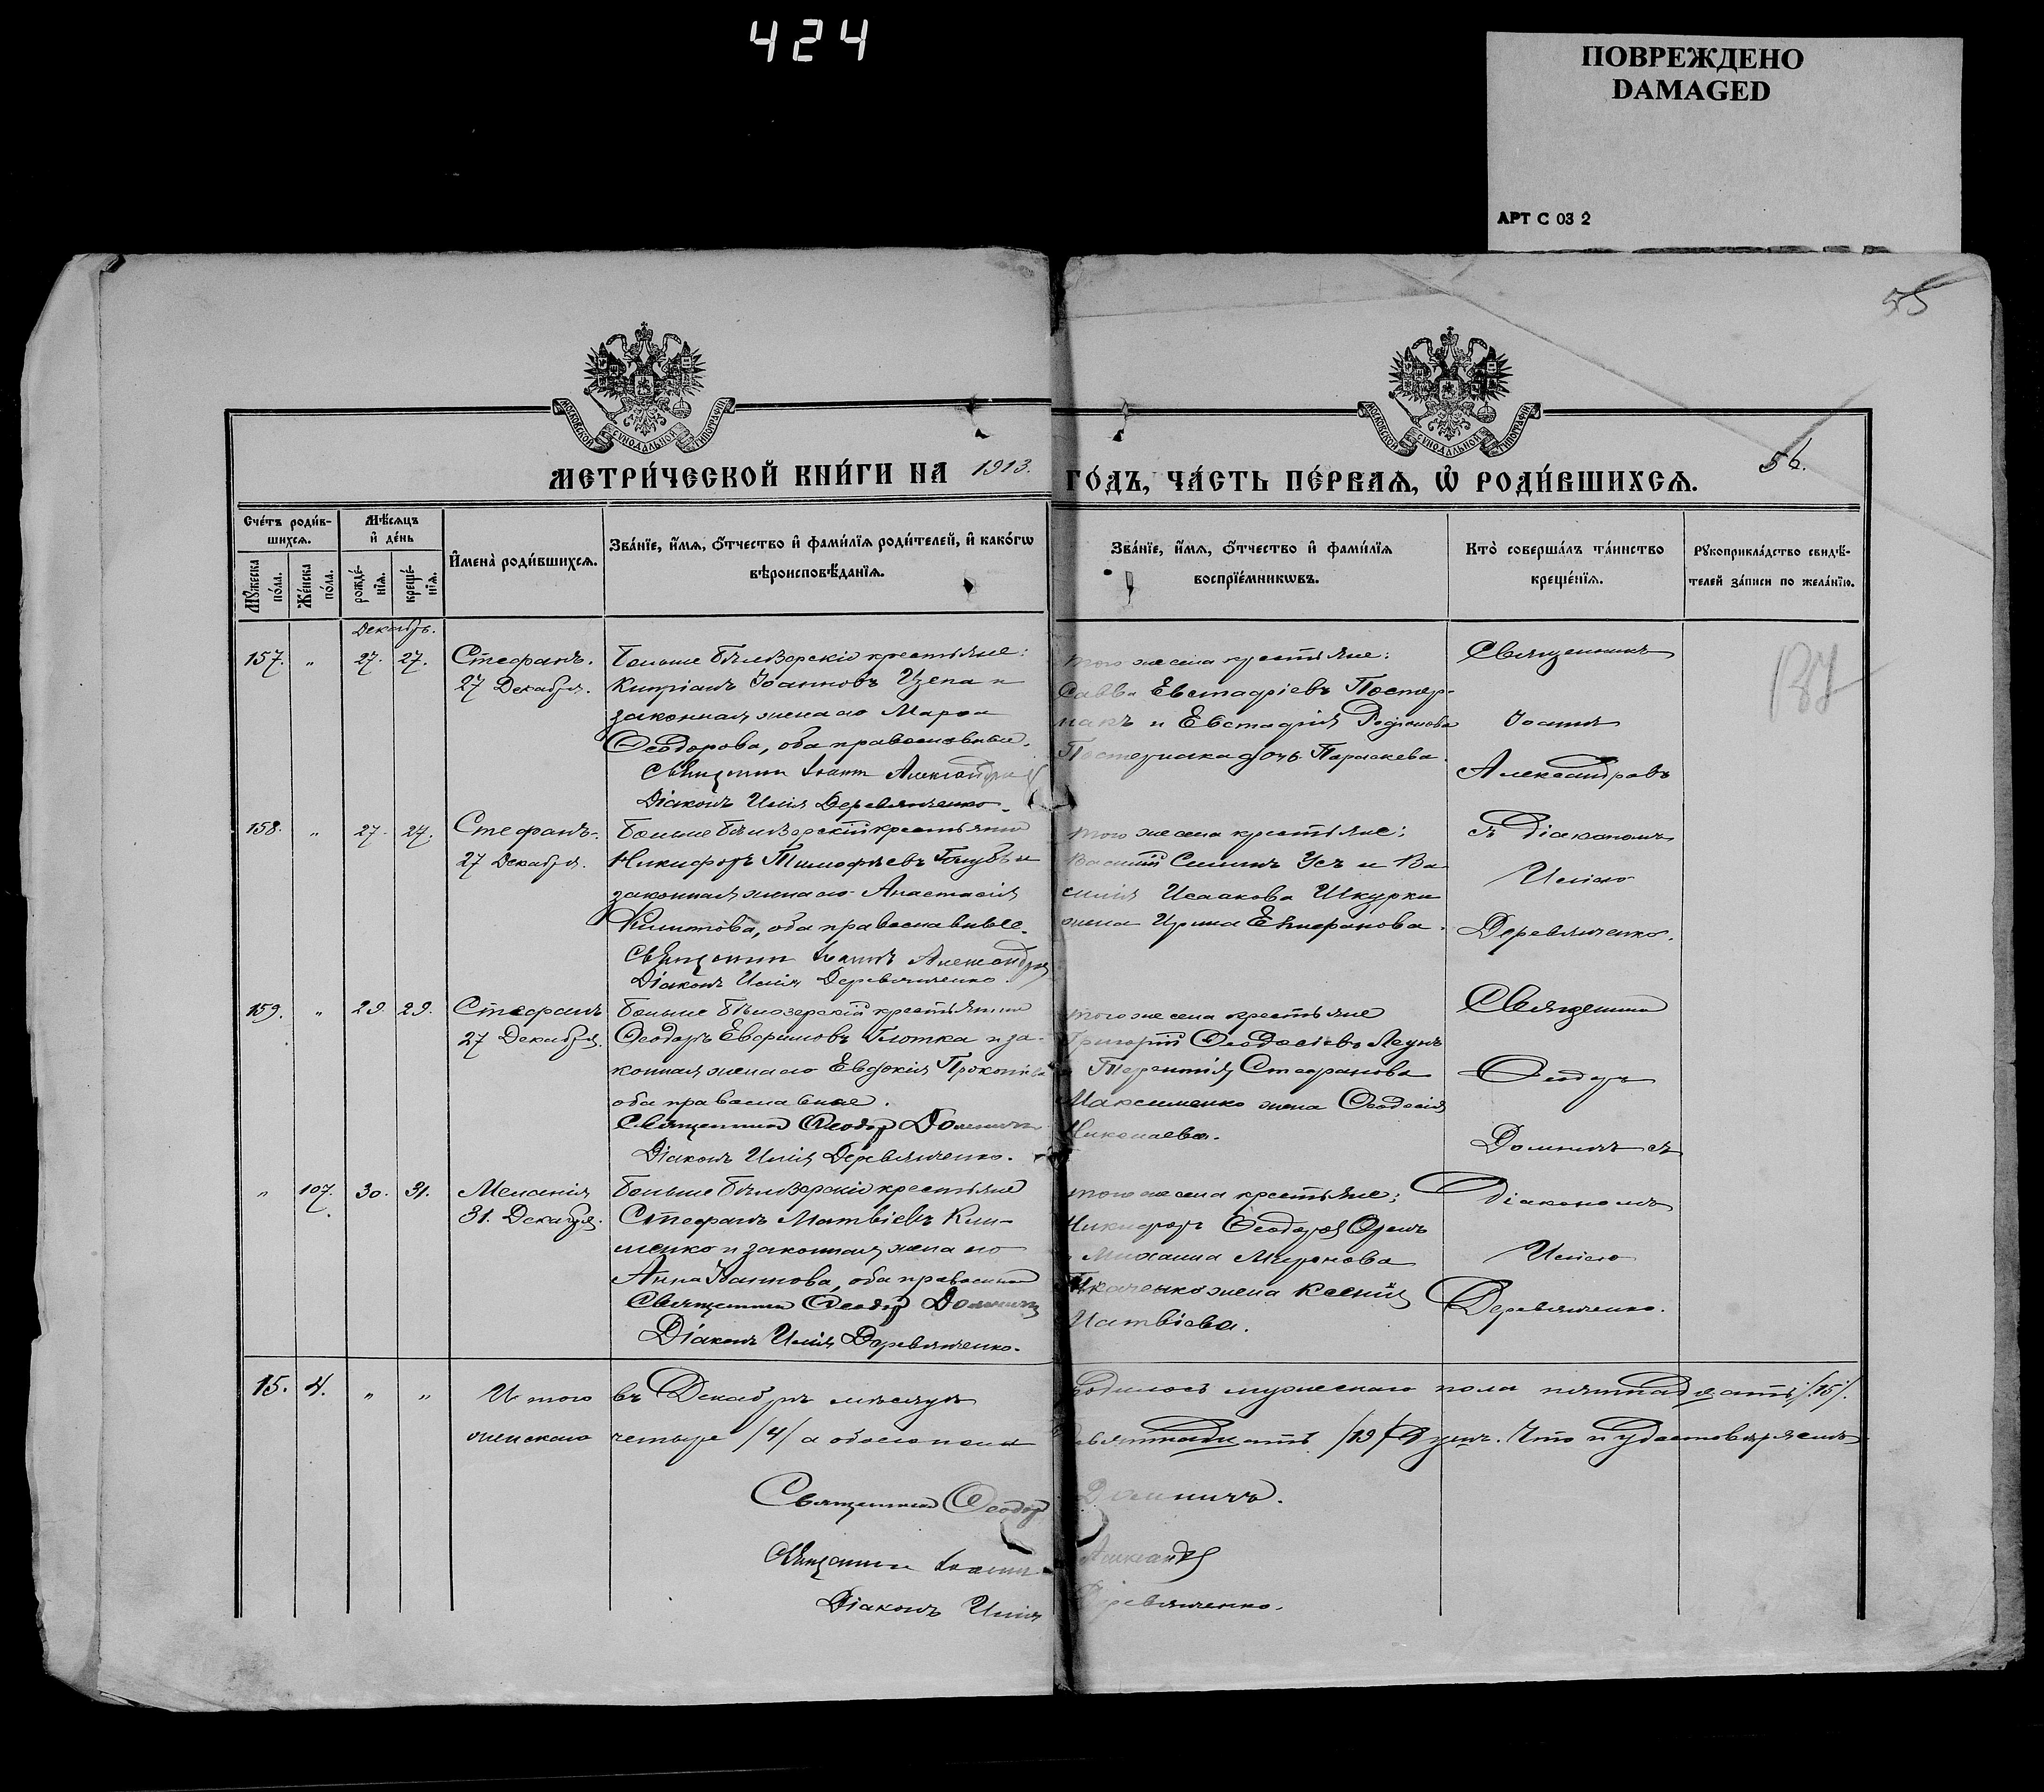 424
ПОВРЕЖДЕНО
DAMAGED
АРТ С 03 2
55
МОСКОВСКОЙ СѴНОДАЛЬНОЙ ТИПОГРАФІИ
МОСКОВСКОЙ СѴНОДАЛЬНОЙ ТИПОГРАФІИ
МЕТРИ́ЧЕСКОЙ КНИ́ГИ НА 1913. ГО́ДЪ, ЧА́СТЬ ПЕ́РВАѦ, Ѽ РОДИ́ВШИХСѦ.
56.
Сче́тъ роди́в-
шихсѧ.
Мꙋ́жеска по́ла.
Же́нска по́ла.
Мѣ́сѧцъ
и҆ де́нь
рожде́-нїѧ.
креще́-нїѧ.
И҆мена̀ роди́вшихсѧ.
Зва́нїе, и҆́мѧ, ѻ҆́тчество и҆ фами́лїѧ роди́телей, и҆ како́гѡ
вѣроисповѣ́данїѧ.
Зва́нїе, и҆́мѧ, ѻ҆́тчество и҆ фами́лїѧ
воспрїе́мникѡвъ.
Кто̀ соверша́лъ та́инство
креще́нїѧ.
Рꙋкоприкла́дство свидѣ́-
телей за́писи по жела́нїю.
Декабрь.
157. " 27. 27. Стефанъ.
27 Декабря.
Больше Бѣлозерскіе крестьяне:
Кипріанъ Іоанновъ Цепа и
законная жена его Марѳа
Ѳеодорова, оба православные.
Священникъ Іоаннъ Александровъ
Діаконъ Илія Деревянченко.
того же села крестьяне:
Савва Евстафіевъ Постер-
накъ и Евстафія
Постернака дочь Параскева.
Священникъ
Іоаннъ
Александровъ
158. " 27. 27. Стефанъ.
27 Декабря.
Больше Бѣлозерскій крестьянинъ
Никифоръ Тимофѣевъ Голубъ и
законная жена его Анастасія
Климентова, оба православные.
Священникъ Іоаннъ Александровъ
Діаконъ Илія Деревянченко.
того же села крестьяне:
Василій Симинъ Усъ и Ва
силія Исаакова Шкурки
жена Ирина Епифанова.
съ Діакономъ
Иліею
Деревянченко.
159. " 29. 29. Стефанъ
27 Декабря.
Больше Бѣлозерскій крестьянинъ
Ѳеодоръ Евфимовъ Глотка и за-
конная жена его Евдокія Прокопіева
оба православные.
Священникъ Ѳеодоръ Домничъ
Діаконъ Илія Деревянченко.
того же села крестьяне
Григорій Ѳеодосіевъ Леунъ
и Терентія Стефанова
Максименко жена Ѳеодосія
Николаева.
Священникъ
Ѳеодоръ
Домничъ съ
" 107. 30. 31. Меланія
31. Декабря.
Больше Бѣлозерскіе крестьяне
Стефанъ Матвіевъ Кли-
менко и законная жена его
Анна Іоаннова, оба православные
Священникъ Ѳеодоръ Домничъ
Діаконъ Илія Деревянченко.
того же села крестьяне:
Никифоръ Ѳеодоровъ
и Михаила Миронова
Ткаченко жена Ксенія
Матвіева.
Діакономъ
Иліею
Деревянченко.
15. 4. " " Итого въ Декабрѣ мѣсяцѣ родилось мужескаго пола пятнадцать /15/.
женскаго четыре /4/ а обоего пола девятнадцать /19/ душъ. Что и удостовѣряемъ
Священникъ Ѳеодоръ Домничъ.
Священникъ Іоаннъ Александровъ
Діаконъ Илія Деревянченко.